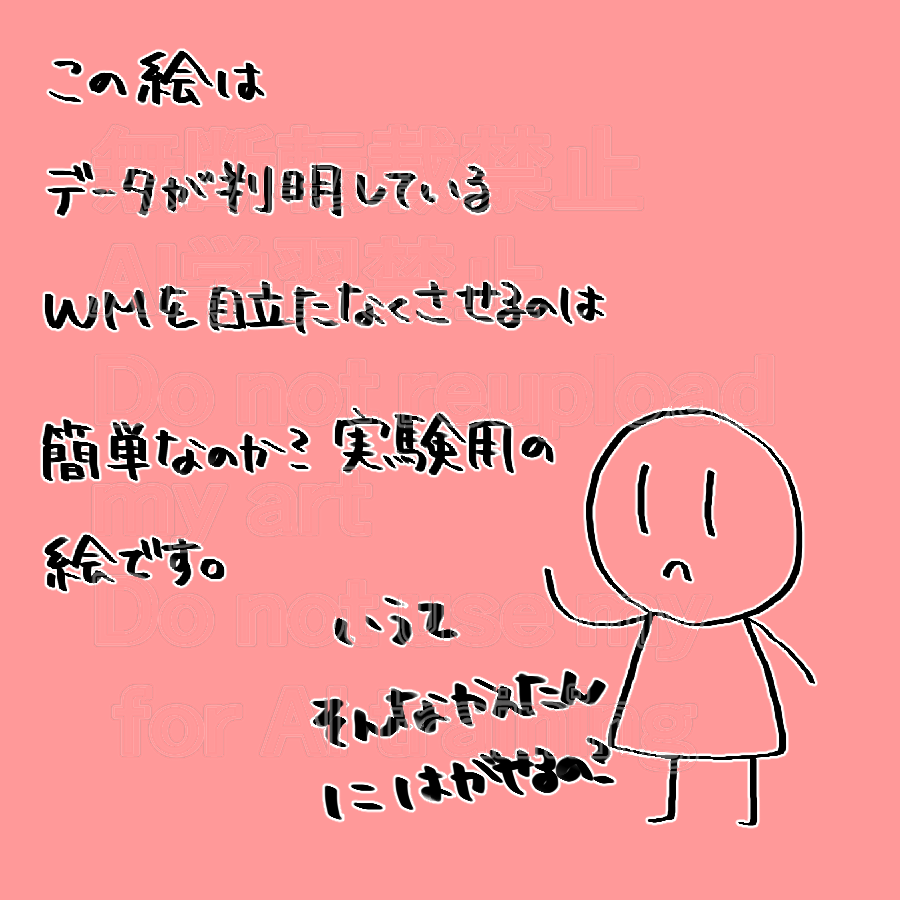 この絵は
無断転載禁止
データが判明している
AI学習禁止
WMを目立たなくさせるのは
Do not reupload
簡単なのか？実験用の
my art
絵です。
Do not use my
いうて
for AI training
そんなかんたん
にはがせるの？